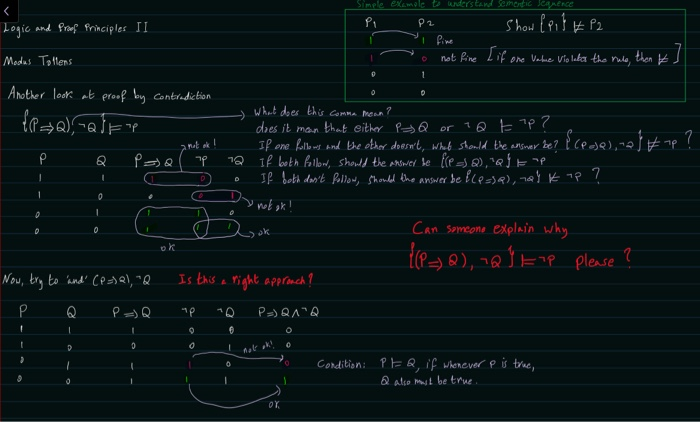 Simple example to understand semantic sequence
Logic and Proof Principles II
P1 P2 Show {P1} ⊭ P2
1 1 fine
1 0 not fine [if one value violates the rule, then ⊭]
0 1
0 0
Modus Tollens
Another look at proof by contradiction
{(P⇒Q), ¬Q} ⊨ ¬P
What does this comma mean?
does it mean that either P⇒Q or ¬Q ⊨ ¬P?
If one follows and the other doesn't, what should the answer be? {(P⇒Q), ¬Q} ⊭ ¬P?
If both follow, should the answer be {(P⇒Q), ¬Q} ⊨ ¬P
If both don't follow, should the answer be {(P⇒Q), ¬Q} ⊭ ¬P?
not ok!
P Q P⇒Q ¬P ¬Q
1 1 1 0 0
1 0 0 0 1
not ok!
0 1 1 1 0
0 0 1 1 1
ok
ok
Can someone explain why
{(P⇒Q), ¬Q} ⊨ ¬P please?
Now, try to 'and' (P⇒Q), ¬Q Is this a right approach?
P Q P⇒Q ¬P ¬Q P⇒Q∧¬Q
1 1 1 0 0 0
1 0 0 0 1 0
not ok!
0 1 1 1 0 0
0 0 1 1 1 1
ok
Condition: P ⊨ Q, if whenever P is true,
Q also must be true.